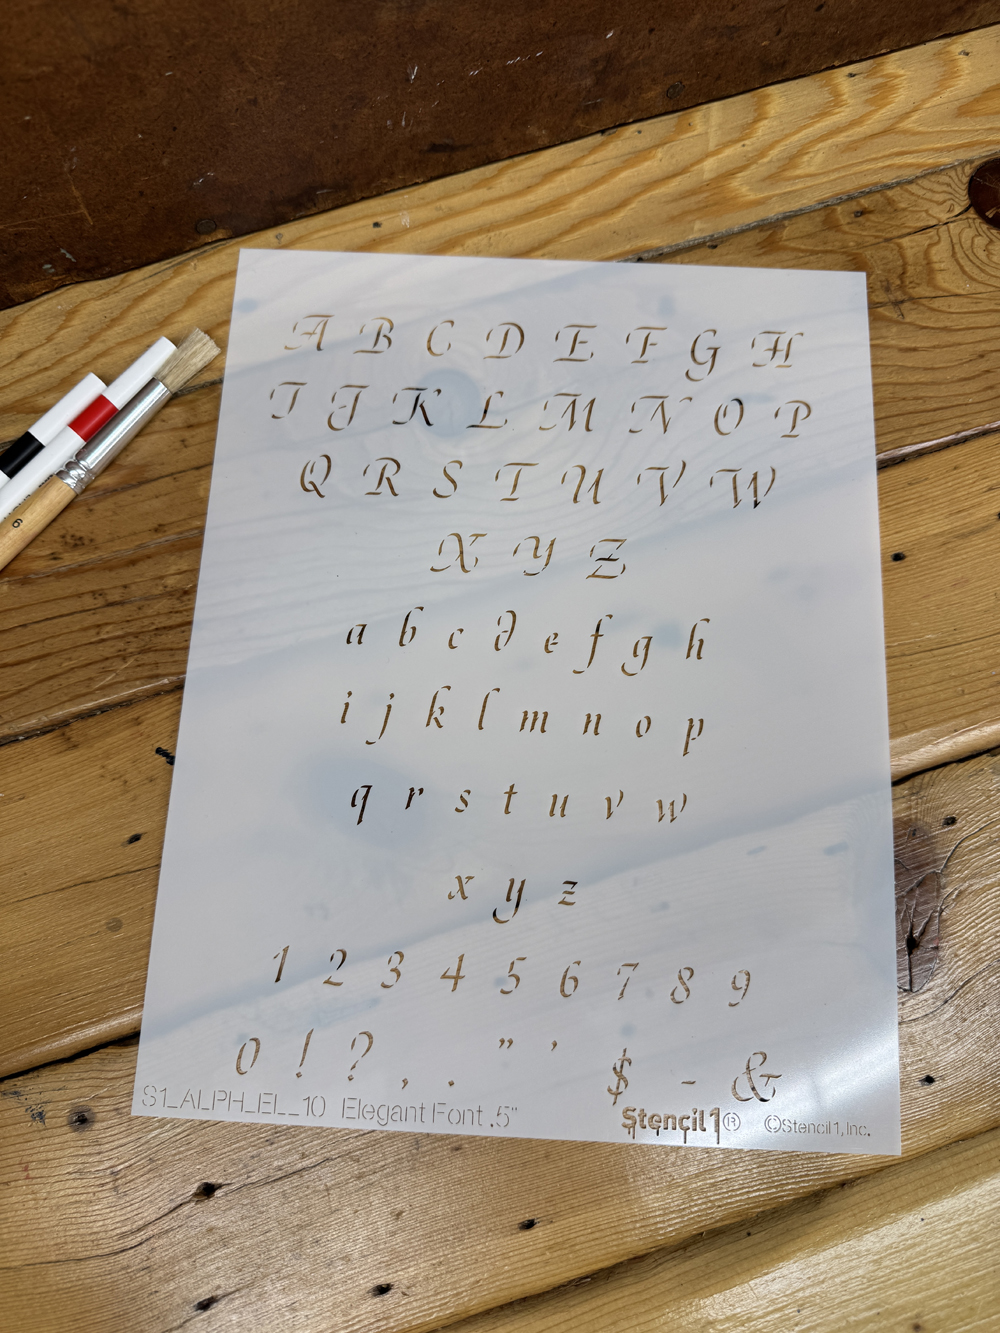 A B C D E F G H
I J K L M N O P
Q R S T U V W
X Y Z
a b c d e f g h
i j k l m n o p
q r s t u v w
x y z
1 2 3 4 5 6 7 8 9
0 ! ? , . ” ’ $ - &
S1_ALPH_EL_10 Elegant Font .5" Stencil1® ©Stencil1, Inc.
6